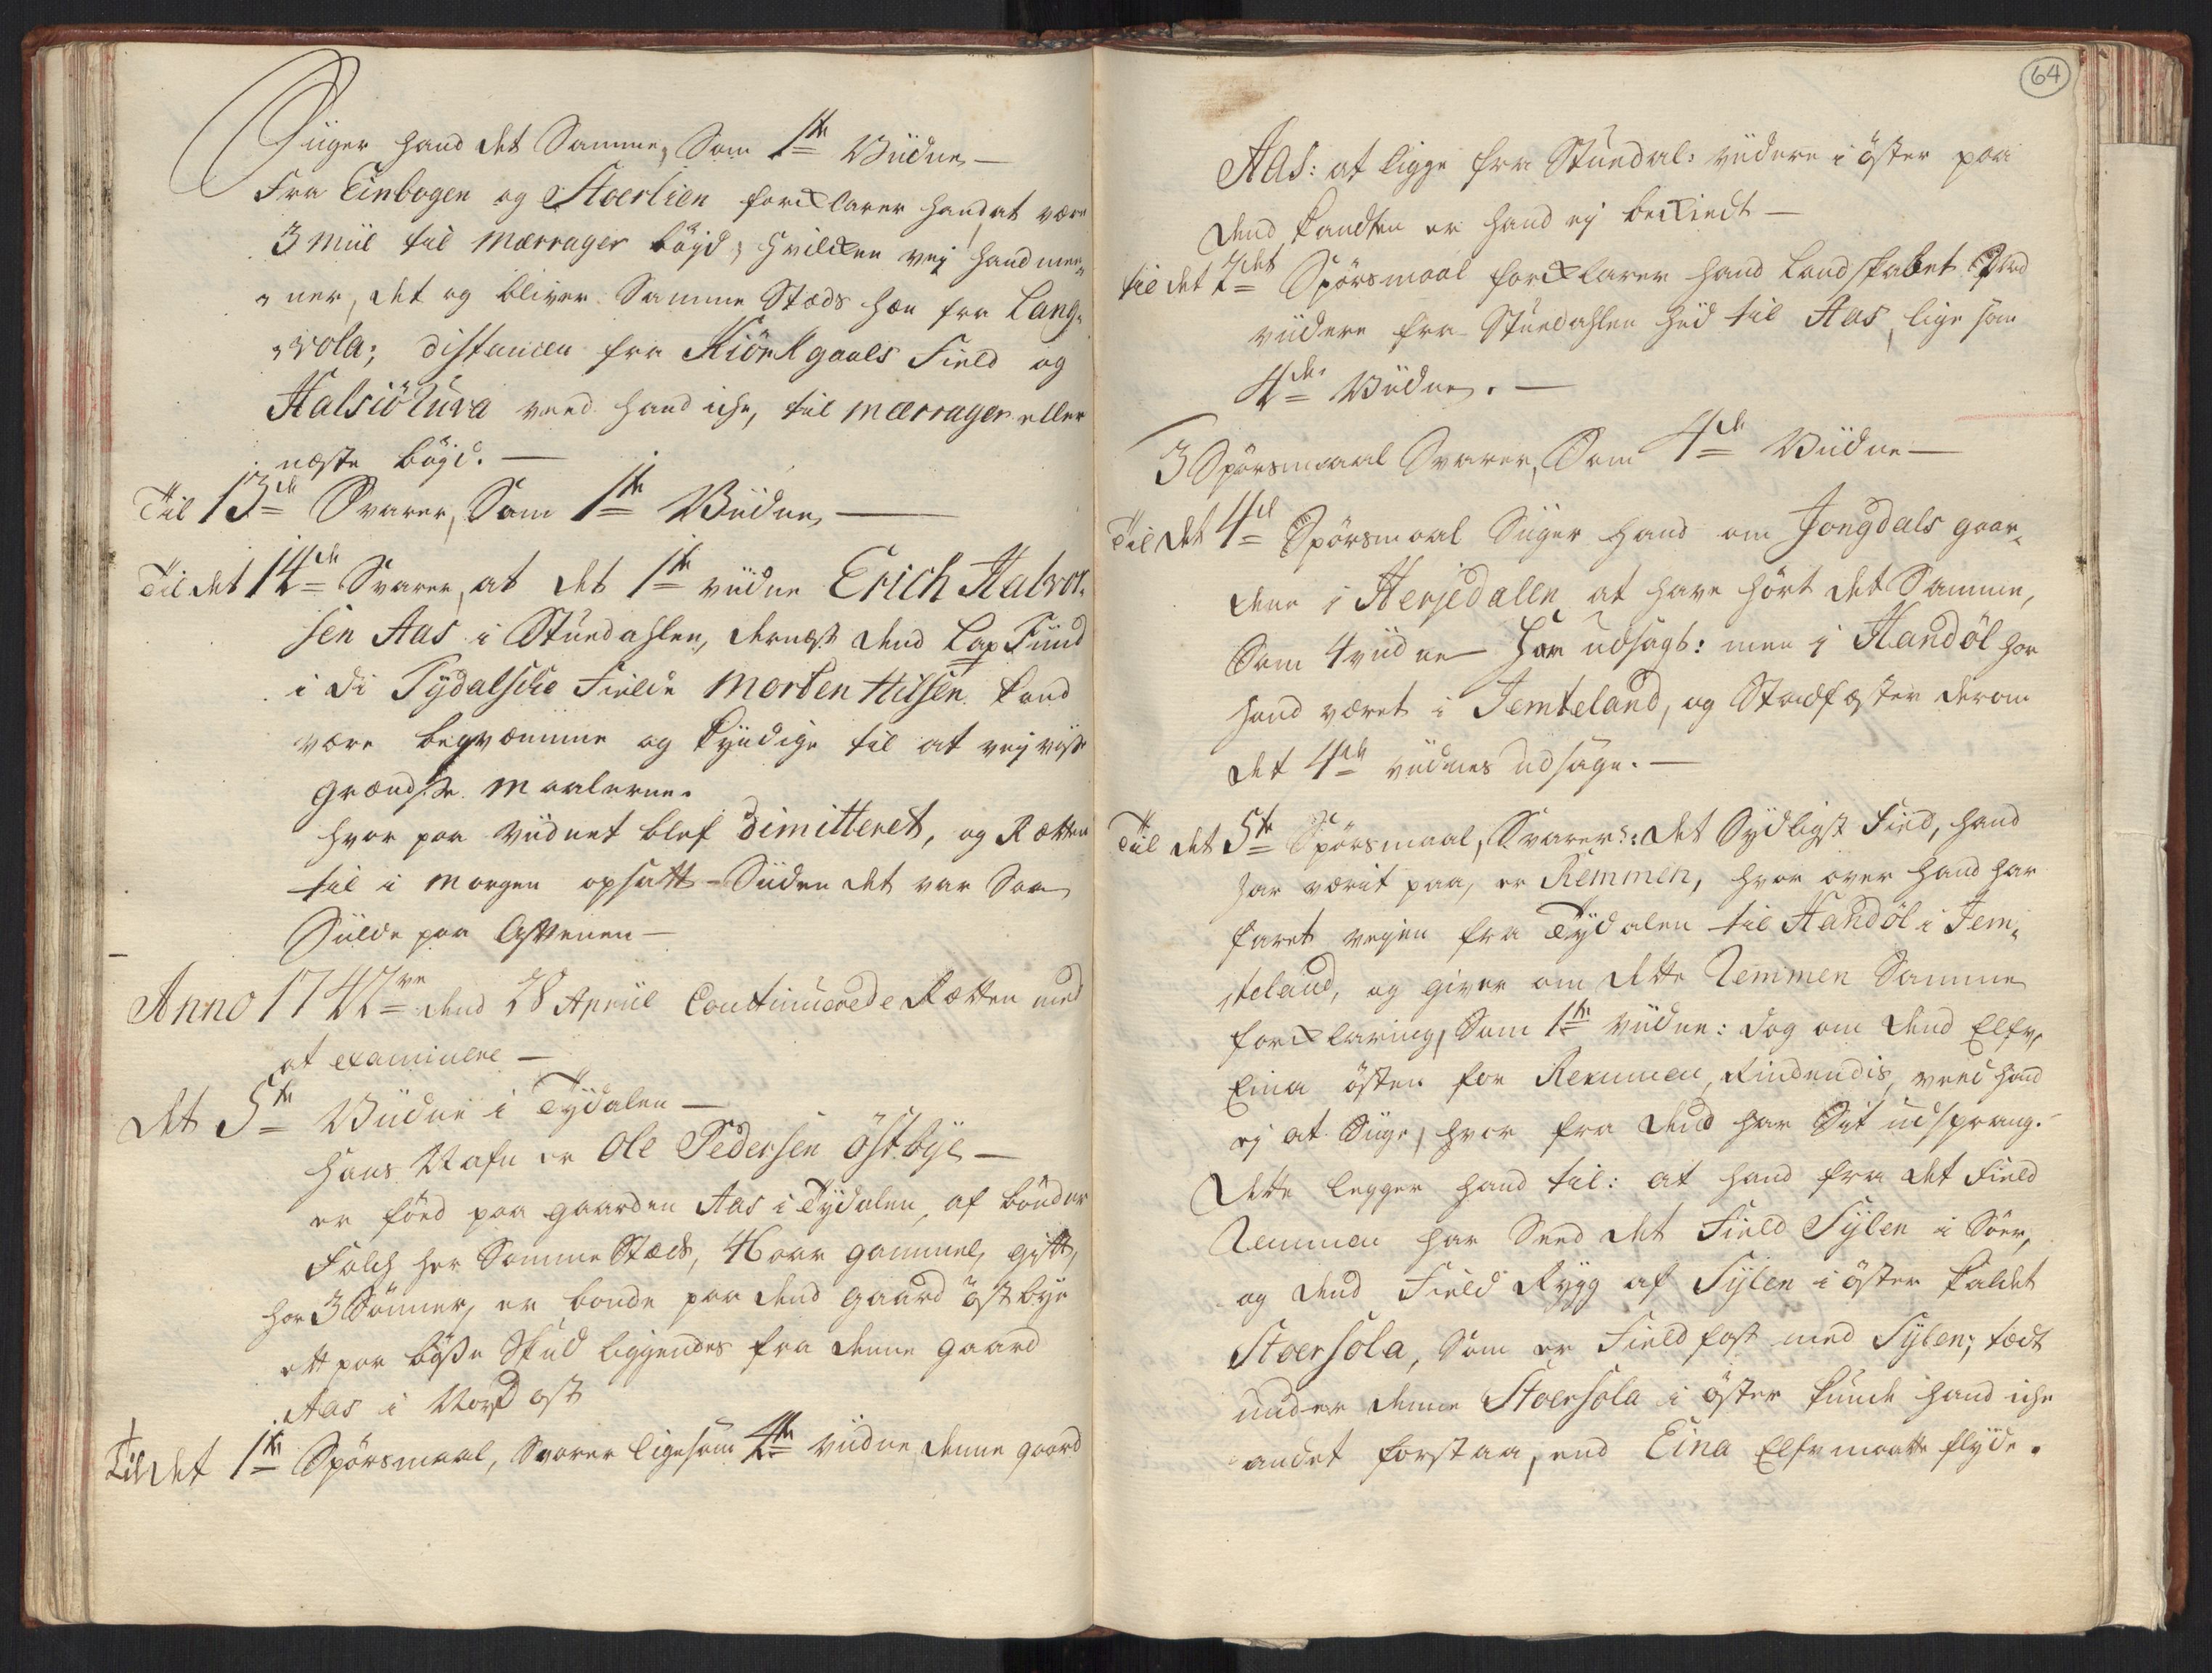 Siiger hand det Samme, Som 1ste Viidne —
Fra Einbogen og Stoerlien forklarer hand, at være
3 miil til Mærrager böyd, hvilken vej hand mee„
„ner, det og bliver Samme Stæds hæn fra Lang„
„vola; distancen fra Kiörkgaals Field og
Halsiötuva veed hand iche, til Mærrager eller
næste böyd. —
Til 13de Svarer, Som 1ste Viidne, —
Til det 14de Svarer, at det 1ste viidne Erich Halvor„
sen Aas i Stuedahlen, dernæst dend Lap Find
i di Tydalsche Fielde Morten Nilsen kand
være beqvæmme og kyndige til at vej viise
Grændse Maalerne.
hvor paa viidnet blef dimitteret, og Rætten
til i Morgen opsatt – Siiden det var Saa
Siilde paa Aftenen —
Anno 1742ve dend 28 Apriil Continuerede Rætten med
at examinere —
Det 5te Viidne i Tydalen —
Hans Nafn er Ole Pedersen Östbye —
er föed paa gaarden Aas i Tydalen, af bönder
Folch her Samme Stæds, 46 aar gammel, gift,
har 3 Sönner, er bonde paa dend gaard Östbye
ett par bösse Skud liggendes fra denne gaard
Aas i Nord ost
Til det 1ste Spörsmaal, Svarer ligesom 4de viidne, denne gaard
64
Aas: at ligge fra Stuedal: viidere i öster paa
dend kandten er hand ej bekiendt —
til det 2det Spörsmaal forklarer hand Landskabet
viidere fra Stuedahlen hid til Aas, lige som
4de Viidne. —
3 Spörsmaal Svarer, Som 4de Viidne —
Til det 4de Spörsmaal Siiger hand om Jongdals gaar„
dene i Herjedallen at have hört det Samme,
Som 4 viidne har udsagt: men i Handöl har
hand været i Jemteland, og Stadfæster derom
det 4de viidnes udsagn. —
Til det 5te Spörsmaal, Svarer: det Sydligst Field, hand
har værit paa, er Remmen, hvor over hand har
faret vejen fra Tydalen til Handöl i Jem„
teland, og giver om dette Remmen Samme
forklaring, Som 1ste viidne: dog om dend Elfv,
Eina östen for Remmen, Rindendis, veed hand
ej at Siige, hvor fra dend har Sit udsprang.
Dette legger hand til: at hand fra det Field
Remmen har Seed det Field Sylen i Söer,
og dend Field Rygg af Sylen i öster kaldet
Stoersola, Som er Field fast med Sylen; tædt
under denne Stoersola i öster kunde hand iche
andet forstaa, end Eina Elfv maatte flyde.